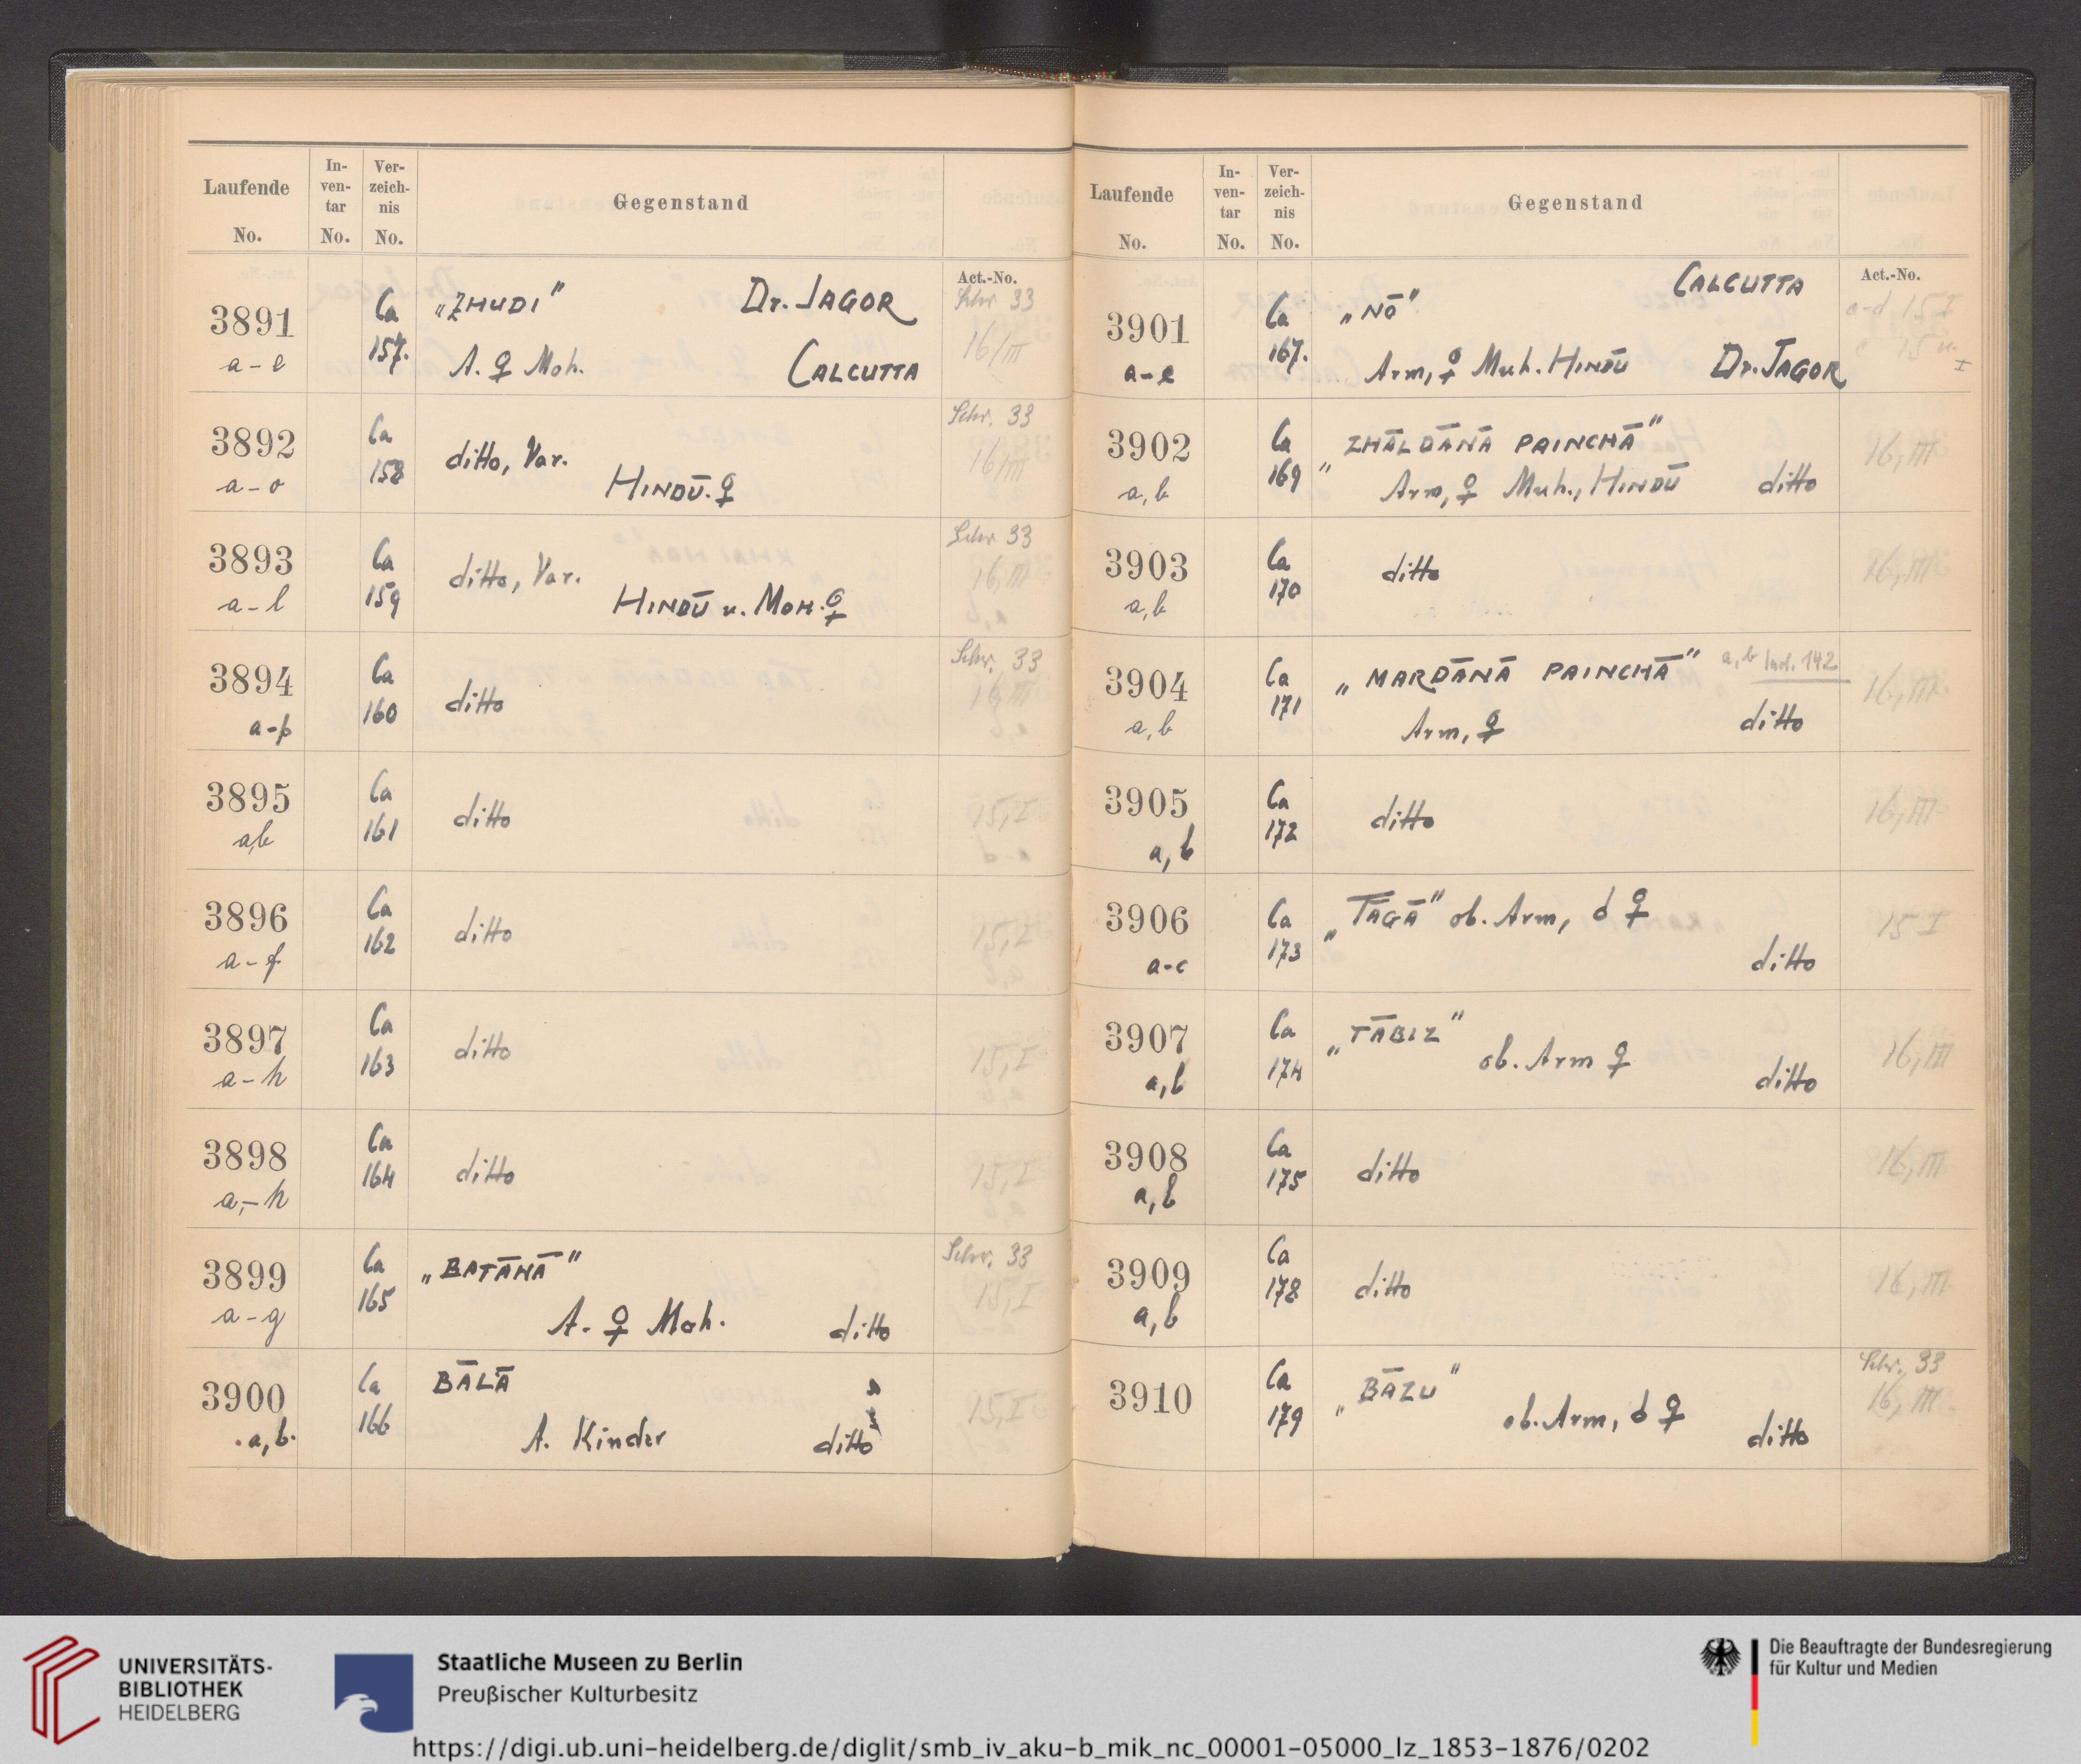 Laufende No.
In-ven-tar No.
Ver-zeich-nis No.
Gegenstand
Act.-No.
3891 a-e Ca 157. „ZHUDI" Dr. JAGOR Schr 33
A. ♀ Moh. CALCUTTA 16/III
3892 a-o Ca 158 ditto, Var. Schr. 33
HINDŪ. ♀ 16/III
3893 a-l Ca 159 ditto, Var. Schr 33
HINDŪ u. MOH. ♀ 16,III
3894 a-p Ca 160 ditto Schr. 33
16,III
3895 a,b Ca 161 ditto 15,I
3896 a-f Ca 162 ditto 15,I
3897 a-h Ca 163 ditto 15,I
3898 a,-h Ca 164 ditto 15,I
3899 a-g Ca 165 „BATĀNĀ" Schr. 33
A. ♀ Moh. ditto 15,I
3900 a,b. Ca 166 BĀLĀ
A. Kinder ditto 15,I
Laufende No.
In-ven-tar No.
Ver-zeich-nis No.
Gegenstand
Act.-No.
CALCUTTA
3901 a-e Ca 167. „NŌ" a-d 15 I
Arm, ♀ Muh. HINDŪ Dr. JAGOR e 15 II
3902 a,b Ca 169 „ZHĀLDĀNĀ PAINCHĀ" 16,III
Arm, ♀ Muh., HINDŪ ditto
3903 a,b Ca 170 ditto 16,III
3904 a,b Ca 171 „MARDĀNĀ PAINCHĀ" a,b Ind. 142 16,III
Arm, ♀ ditto
3905 a,b Ca 172 ditto 16,III
3906 a-c Ca 173 „TĀGĀ" ob. Arm, ♂ ♀ 15 I
ditto
3907 a,b Ca 174 „TĀBIZ" 16,III
ob. Arm ♀ ditto
3908 a,b Ca 175 ditto 16,III
3909 a,b Ca 178 ditto 16,III
3910 Ca 179 „BĀZU" Schr. 33
ob. Arm, ♂ ♀ ditto 16, III.
UNIVERSITÄTS-
BIBLIOTHEK
HEIDELBERG
Staatliche Museen zu Berlin
Preußischer Kulturbesitz
Die Beauftragte der Bundesregierung
für Kultur und Medien
https://digi.ub.uni-heidelberg.de/diglit/smb_iv_aku-b_mik_nc_00001-05000_lz_1853-1876/0202